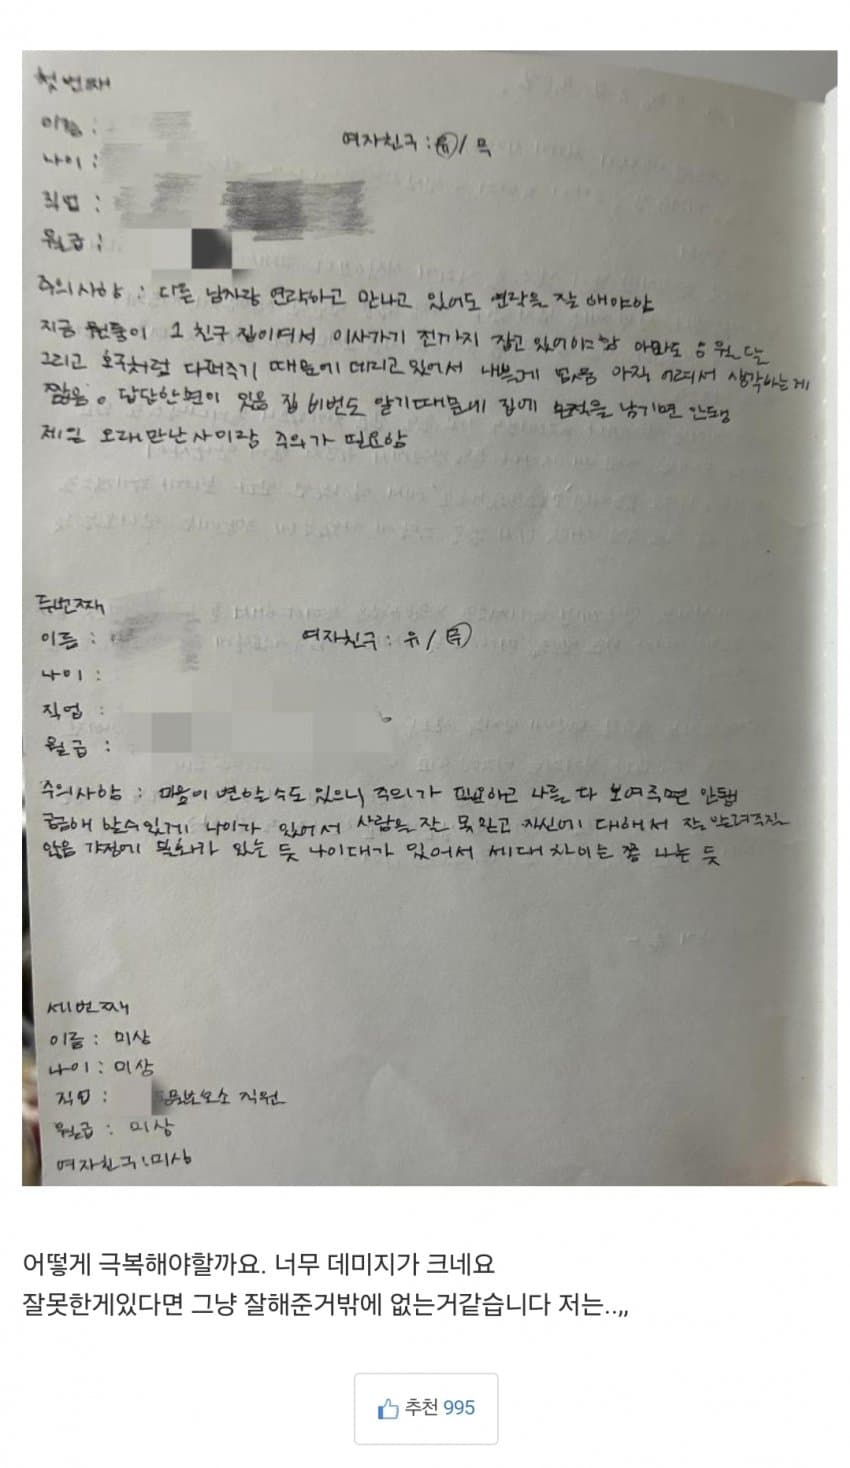 첫번째
이름 :
여자친구 : 유 / 무
나이 :
직업 :
월급 :
주의사항 : 다른 남자랑 연락하고 만나고 있어도 연락을 잘 해야함
지금 원룸이 1 친구 집이여서 이사가기 전까지 잡고 있어야함 아마도 5월달
그리고 호구처럼 다퍼주기 때문에 데리고 있어서 나쁘게 없음 아직 어려서 생각하는게
짧음. 답답한면이 있음 집 비번도 알기때문에 집에 흔적을 남기면 안됌
제일 오래만난사이라 주의가 필요함
두번째
이름 :
여자친구 : 유 / 무
나이 :
직업 :
월급 :
주의사항 : 마음이 변할수도 있으니 주의가 필요하고 나를 다 보여주면 안됌
궁금해 할수있게 나이가 있어서 사람을 잘 못믿고 자신에 대해서 잘 알려주질
않음 가정에 불화가 있는 듯 나이대가 있어서 세대차이는 쫌 나는 듯
세번째
이름 : 미상
나이 : 미상
직업 : 직원
월급 : 미상
여자친구 : 미상
어떻게 극복해야할까요. 너무 데미지가 크네요
잘못한게있다면 그냥 잘해준거밖에 없는거같습니다 저는..,,
추천 995